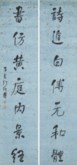 詩追白傅元和體
書仿黃庭內景經